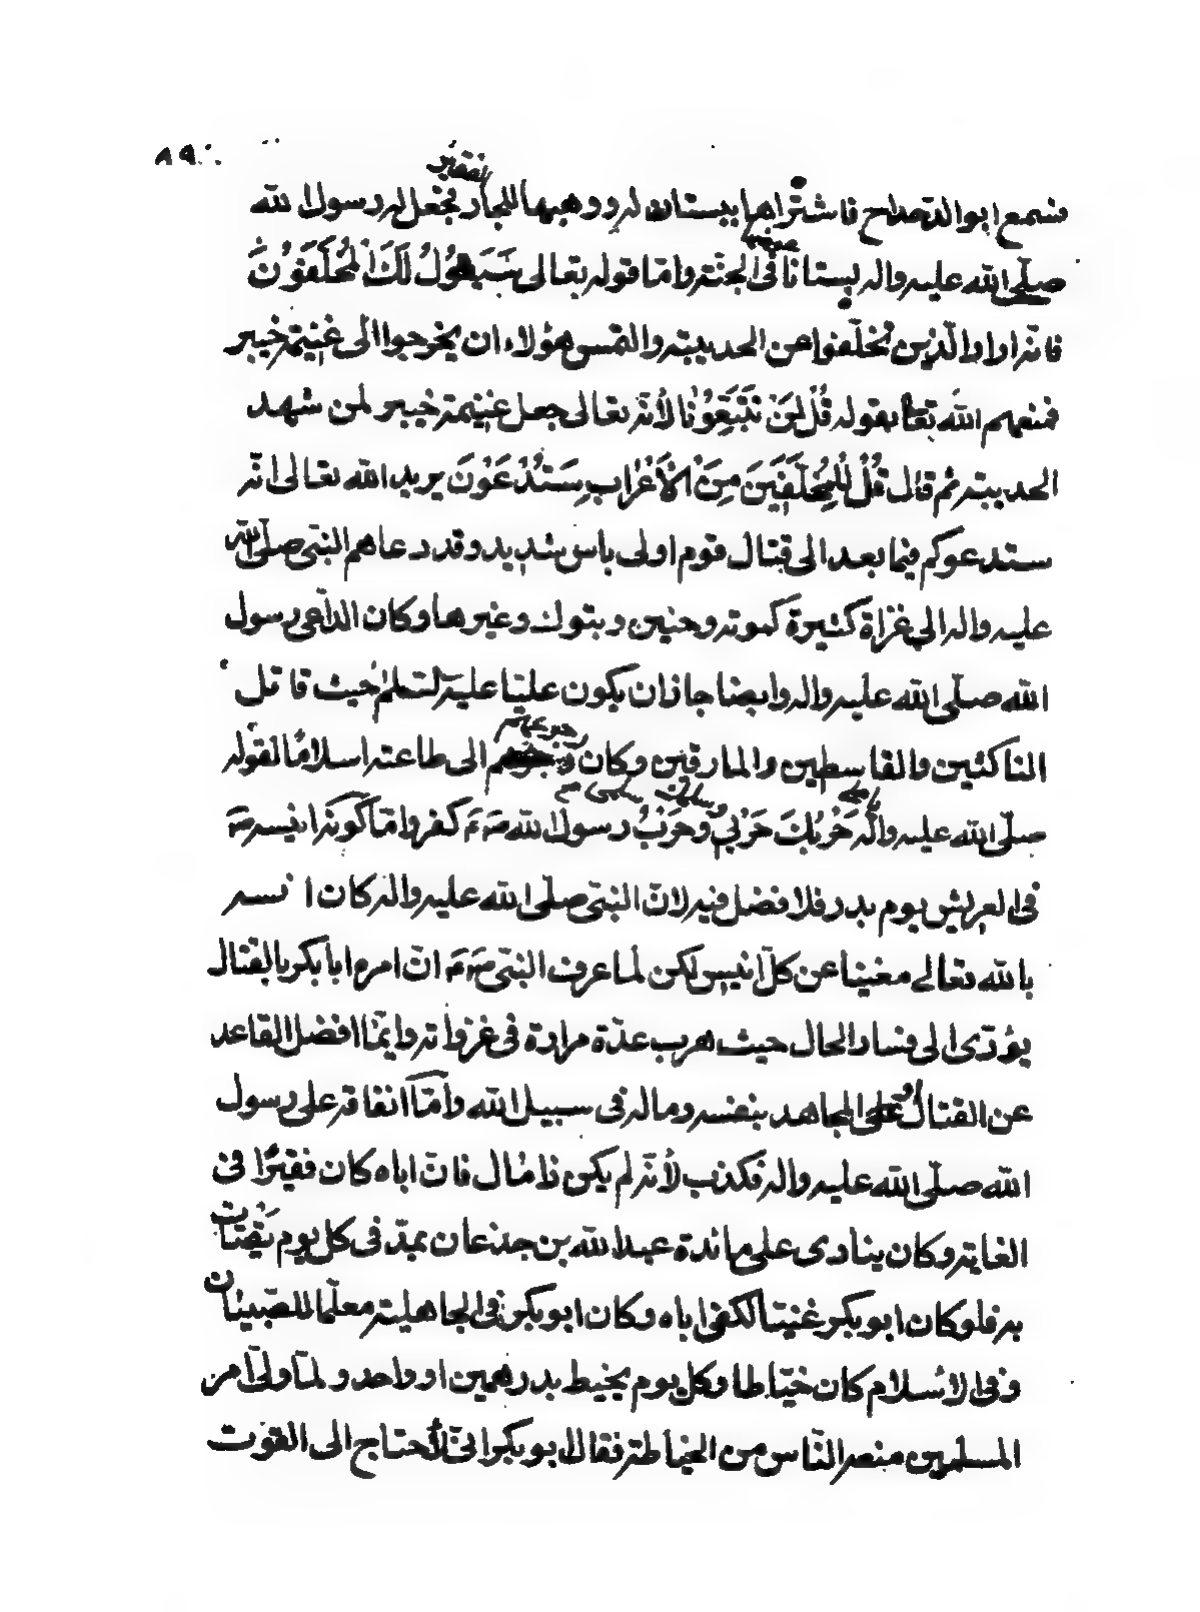 ٨٩
فسمع ابو الدحداح فاشتراها ببستان له ووهبها للجار الفقير فجعل له رسول الله
صلّى الله عليه واله بستانا فى الجنة وامّا قوله تعالى سَيَقُولُ لَكَ الْمُخَلَّفُونَ
فانه اراد الّذين تخلّفوا عن الحديبيّة والتمس هؤلاء ان يخرجوا الى غنيمة خيبر
فمنعهم الله تعالى بقوله قُلْ لَنْ تَتَّبِعُونَا لأنّه تعالى جعل غنيمة خيبر لمن شهد
الحديبيّة ثم قال قُلْ لِلْمُخَلَّفِينَ مِنَ الْأَعْرَابِ سَتُدْعَوْنَ يريد الله تعالى انّه
ستدعوكم فيما بعد الى قتال قوم اولى باس شديد وقد دعاهم النبّى صلّى الله
عليه واله الى غزاة كثيرة كموته وحنين وبتوك وغيرها وكان الدّاعى رسول
الله صلّى الله عليه واله وايضا جاز ان يكون عليّا عليه السّلم حيث قاتل
الناكثين والقاسطين والمارقين وكان رجوعهم الى طاعته اسلامًا لقوله
صلّى الله عليه واله حَرْبُكَ حَرْبِي وَحَرْبُ رسول الله ص م كفر وامّا كونه انيسه ص م
فى العريش يوم بدر فلا فضل فيه لانّ النبّى صلّى الله عليه واله كان انسه
بالله تعالى مغنيا عن كلّ انيس لكن لما عرف النبّى ص م انّ امره ابا بكر بالقتال
يؤدّى الى فساد الحال حيث هرب عدّة مرارة فى غزواته وايّما افضل القاعد
عن القتال او المجاهد بنفسه وماله فى سبيل الله وامّا انفاقه على رسول
الله صلّى الله عليه واله فكذب لأنّه لم يكن ذا مال فانّ اباه كان فقيرًا فى
الغاية وكان ينادى على مائدة عبد الله بن جذعان بمدّ فى كل يوم يقتات
به فلو كان ابو بكر غنيّا لكفى اباه وكان ابو بكر فى الجاهلية معلّما للصّبيان
وفى الاسلام كان خيّاطا وكل يوم يخيط بدرهمين او واحد ولمّا ولّى امر
المسلمين منعه النّاس من الخياطة فقال ابو بكر انى لأحتاج الى القوت